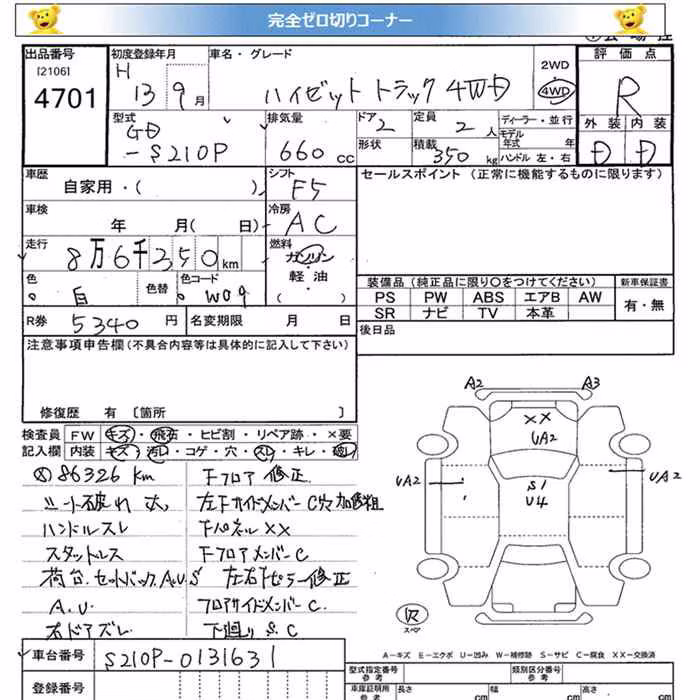 完全ゼロ切りコーナー
出品番号
[2106]
4701
初度登録年月
H
13 9月
車名・グレード
ハイゼット トラック 4WD
2WD
4WD
評価点
R
型式
GD
-S210P
排気量
660 CC
ドア
2
定員
2 人
形状
積載
350 kg
ディーラー・並行
モデル
年式 年
ハンドル 左・右
外装 内装
D D
車歴
自家用・( )
シフト
F5
セールスポイント (正常に機能するものに限ります)
車検
年 月( 日)
冷房
AC
走行
8万6千350km
燃料
ガソリン
・
軽油
( )
色
白
色替
色コード
W09
装備品(純正品に限り○をつけてください)
新車保証書
PS PW ABS エアB AW
SR ナビ TV 本革
有・無
R券 5340 円
名変期限 月 日
後日品
注意事項申告欄(不具合内容等は具体的に記入して下さい)
修復歴 有 〔箇所 〕
検査員 FW キズ・飛石・ヒビ割・リペア跡・×要
記入欄 内装 キズ・汚レ・コゲ・穴・スレ・キレ・破レ
86326 km
シート破れ 大
ハンドルスレ
スタットレス
荷台.セットバック A.U.S
A.U.
右ドアズレ
Fフロア 修正
左FサイドメンバーC
FパネルXX
FフロアメンバーC
左右Fピラー修正
フロアサイドメンバーC.
下廻りS.C
A2 A3
XX
UA2
UA2
S1
U4
UA2
R
スペア
A-キズ E-エクボ U-凹み W-補修跡 S-サビ C-腐食 XX-交換済
車台番号 S210P-0131631
登録番号
型式指定番号
参考
類別区分番号
参考
車庫証明用
参考
長さ cm
幅 cm
高さ cm